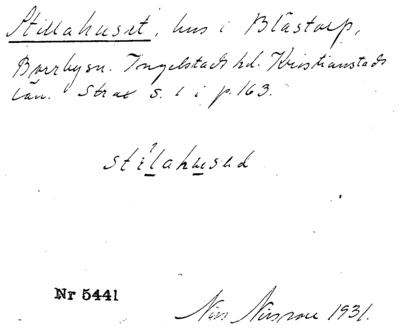 Stillahuset, hus i Blåstorp,
Borrby sn. Ingelstads hd. Kristianstads
län. Strax s. i p. 163.
stilahused
Nr 5441
Nils 1931.